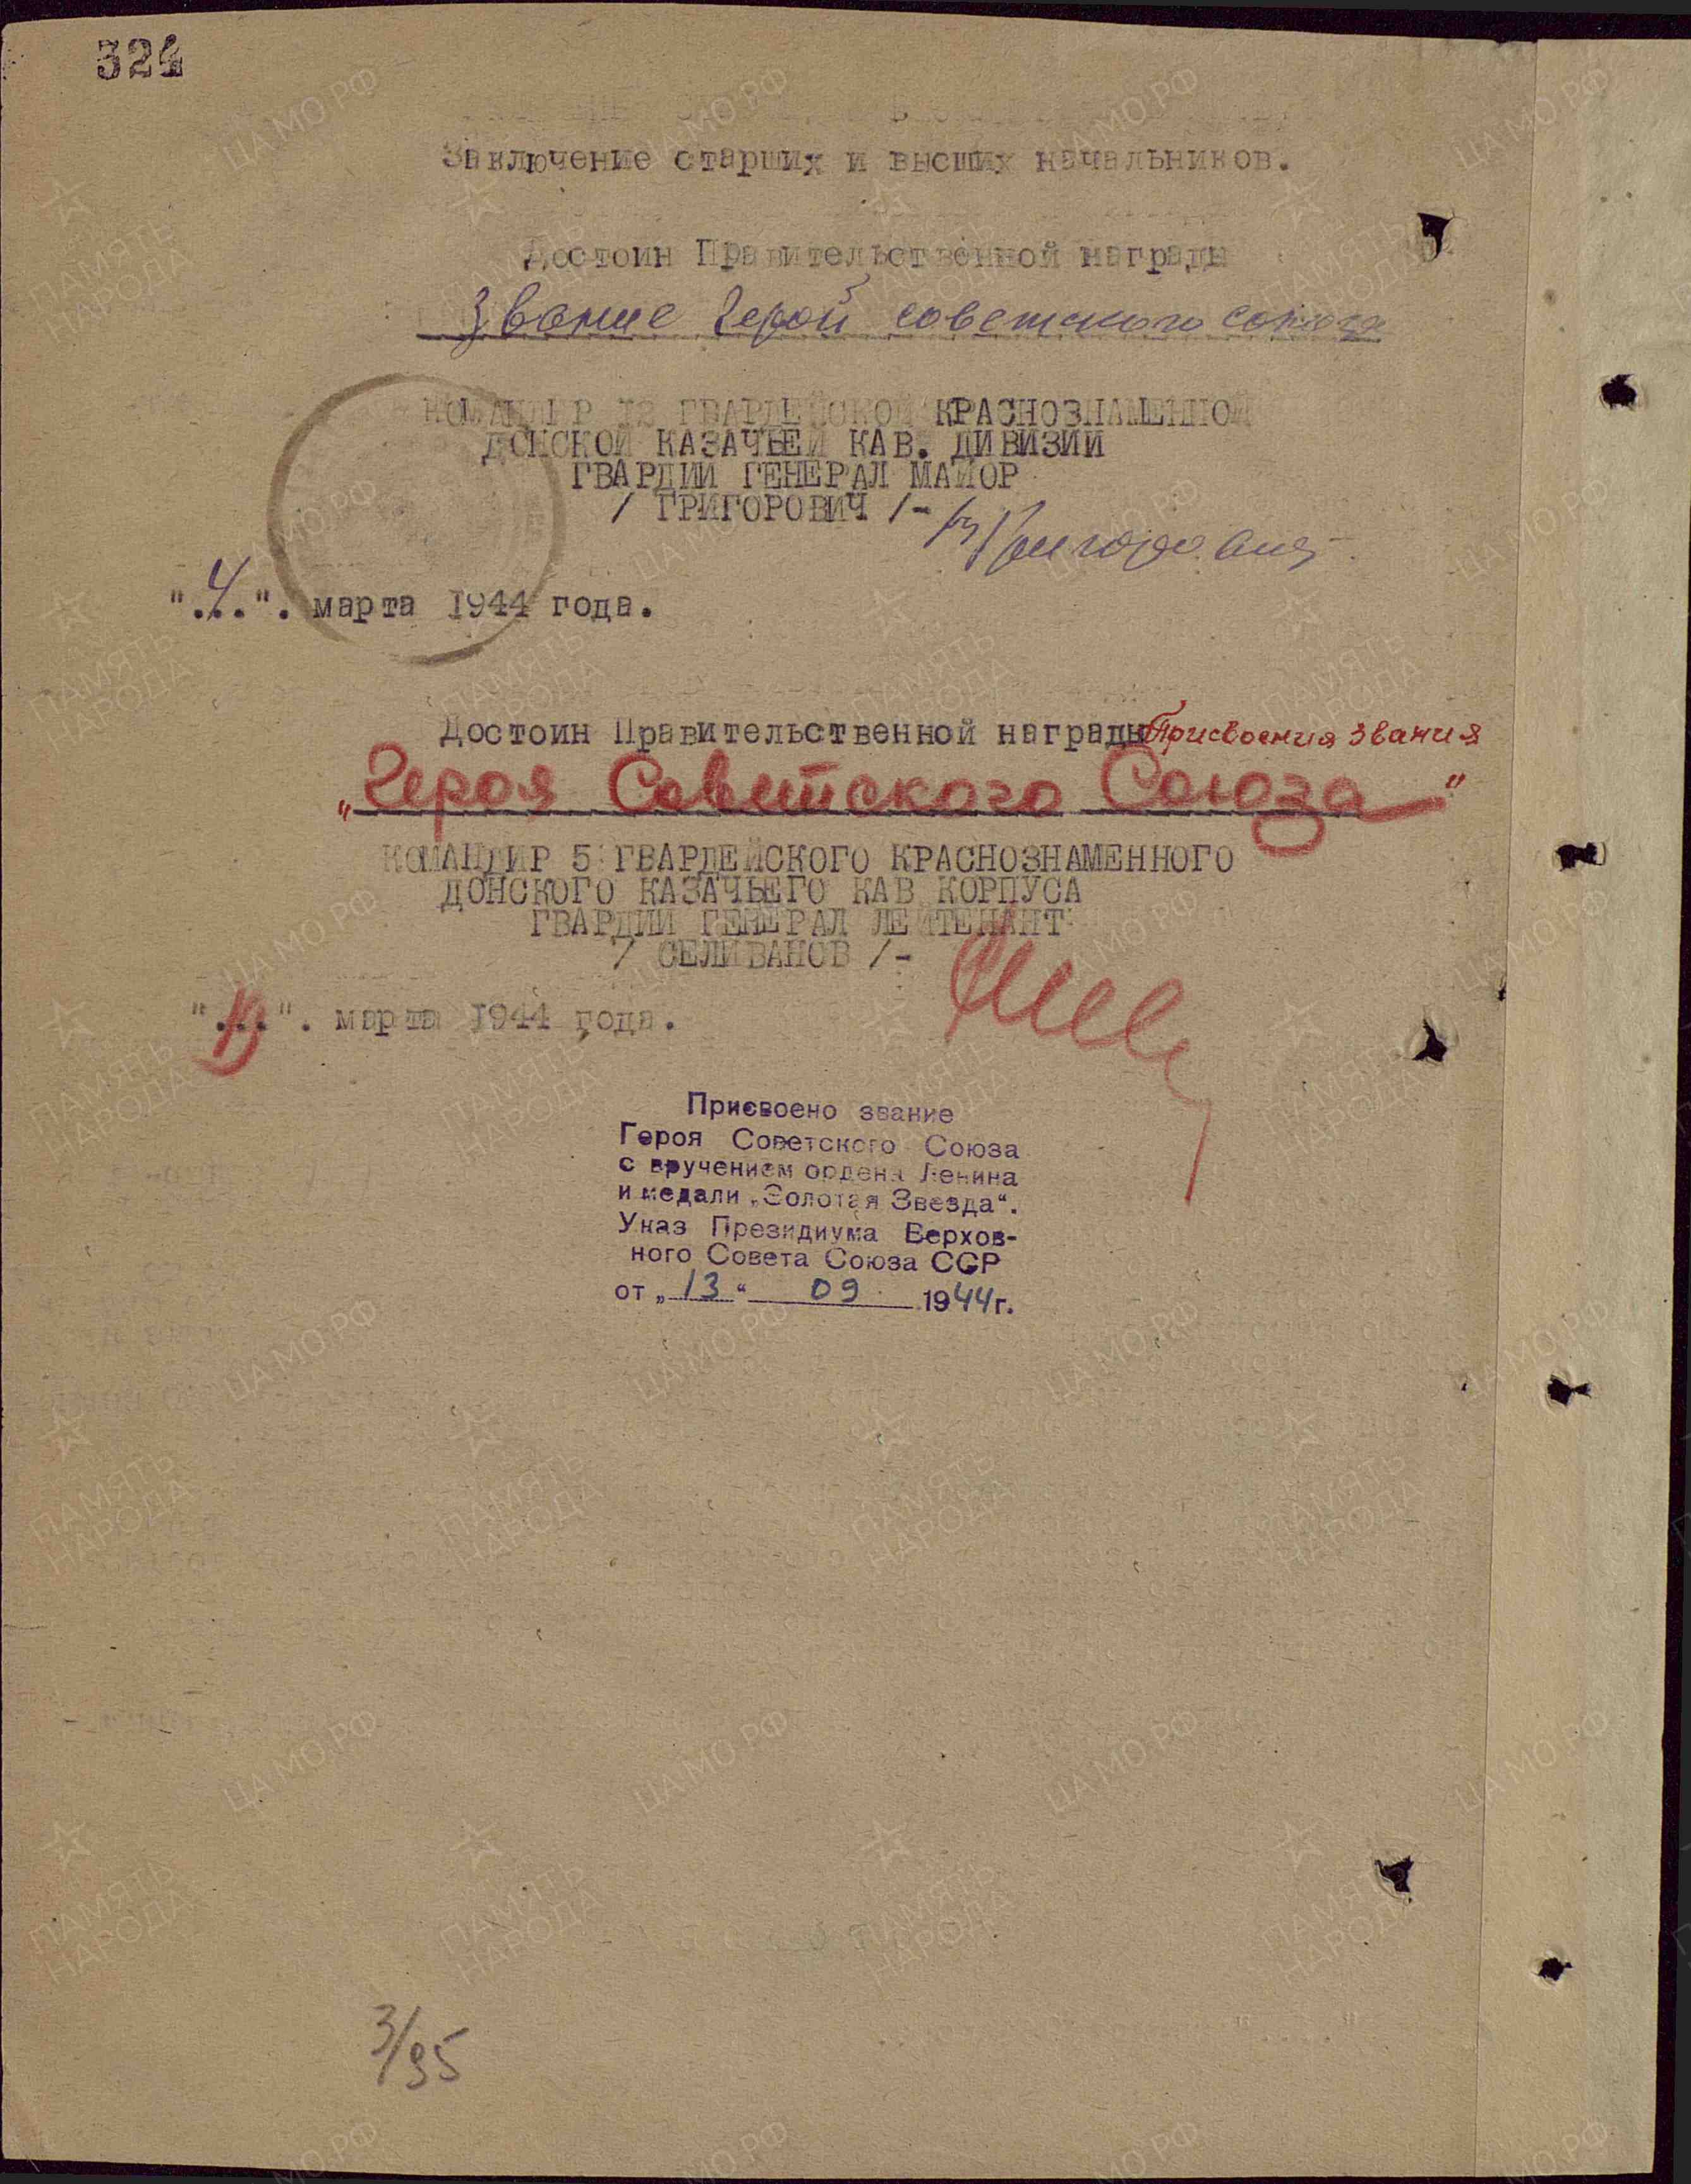 324
Заключение старших и высших начальников.
Достоин Правительственной награды
звание Герой советского союза
КОМАНДИР 12 ГВАРДЕЙСКОЙ КРАСНОЗНАМЕННОЙ
ДОНСКОЙ КАЗАЧЬЕЙ КАВ. ДИВИЗИИ
ГВАРДИИ ГЕНЕРАЛ МАЙОР
/ ГРИГОРОВИЧ /-
"4". марта 1944 года.
Достоин Правительственной награды Присвоения звания
„Героя Советского Союза"
КОМАНДИР 5 ГВАРДЕЙСКОГО КРАСНОЗНАМЕННОГО
ДОНСКОГО КАЗАЧЬЕГО КАВ КОРПУСА
ГВАРДИИ ГЕНЕРАЛ ЛЕЙТЕНАНТ
/ СЕЛИВАНОВ /-
марта 1944 года.
Присвоено звание
Героя Советского Союза
с вручением ордена Ленина
и медали „Золотая Звезда“.
Указ Президиума Верхов-
ного Совета Союза ССР
от „13“ 09 1944г.
3/95
ПАМЯТЬ НАРОДА
ЦАМО.РФ